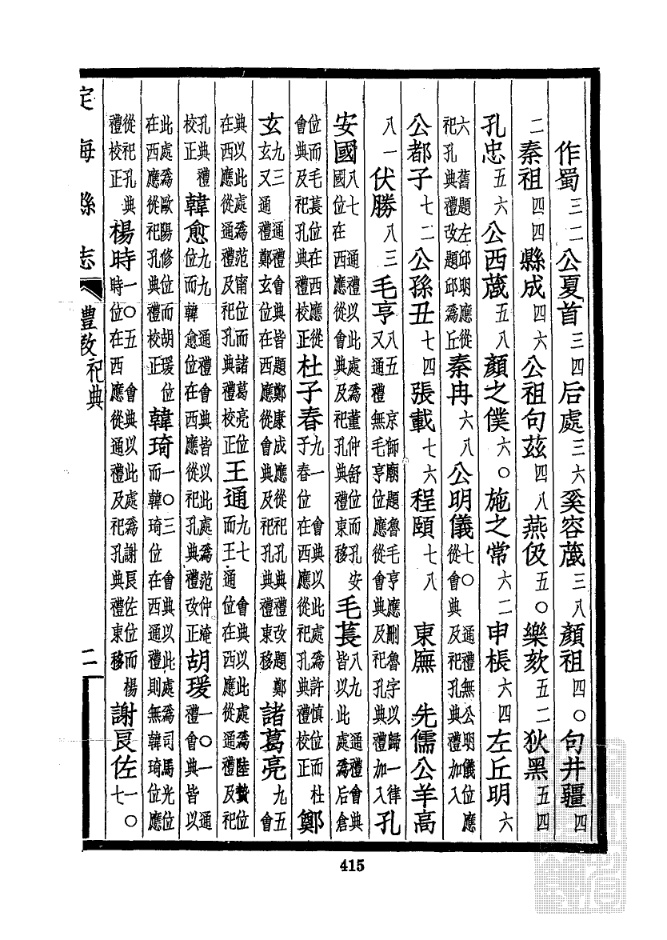 作蜀三二公夏首三四后處三六奚容蒧三八顏祖四〇句井疆四
二秦祖四四縣成四六公祖句茲四八燕伋五〇樂欬五二狄黑五四
孔忠五六公西蒧五八顏之僕六〇施之常六二申棖六四左丘明六
六舊題左邱明應從祀孔典禮改題邱爲丘秦冉六八公明儀七〇通禮無公明儀位應從會典及祀孔典禮加入
公都子七二公孫丑七四張載七六程頤七八 東廡 先儒公羊高
八一伏勝八三毛亨八五京師廟題魯毛亨應刪魯字以歸一律又通禮無毛亨位應從會典及祀孔典禮加入孔
安國八七通禮會典皆以此處爲董仲舒位而孔安國位在西應從以會典及祀孔典禮東移毛萇八九通禮會典皆以此處爲后倉
位而毛萇位在西應從會典及祀孔典禮校正杜子春九一會典以此處爲許慎位而杜子春位在西應從祀孔典禮校正鄭
玄九三通禮會典皆題鄭康成應從祀孔典禮改題鄭玄又通禮鄭玄位在西應從會典及祀孔典禮東移諸葛亮九五會
典以此處爲范甯位而諸葛亮位在西應從通禮及祀孔典禮校正王通九七會典以此處爲陸贄位而王通位在西應從通禮及祀
孔典禮校正韓愈九九通禮會典皆以此處爲范仲淹位而韓愈位在西應從祀孔典禮改正胡瑗一〇一通禮會典皆以
此處爲歐陽修位而胡瑗位在西應從祀孔典禮校正韓琦一〇三會典以此處爲司馬光位而韓琦位在西通禮則無韓琦位應
從祀孔典禮校正楊時一〇五會典以此處爲謝良佐位而楊時位在西應從通禮及祀孔典禮東移謝良佐一〇七
定海縣志 禮敎祀典 二
415